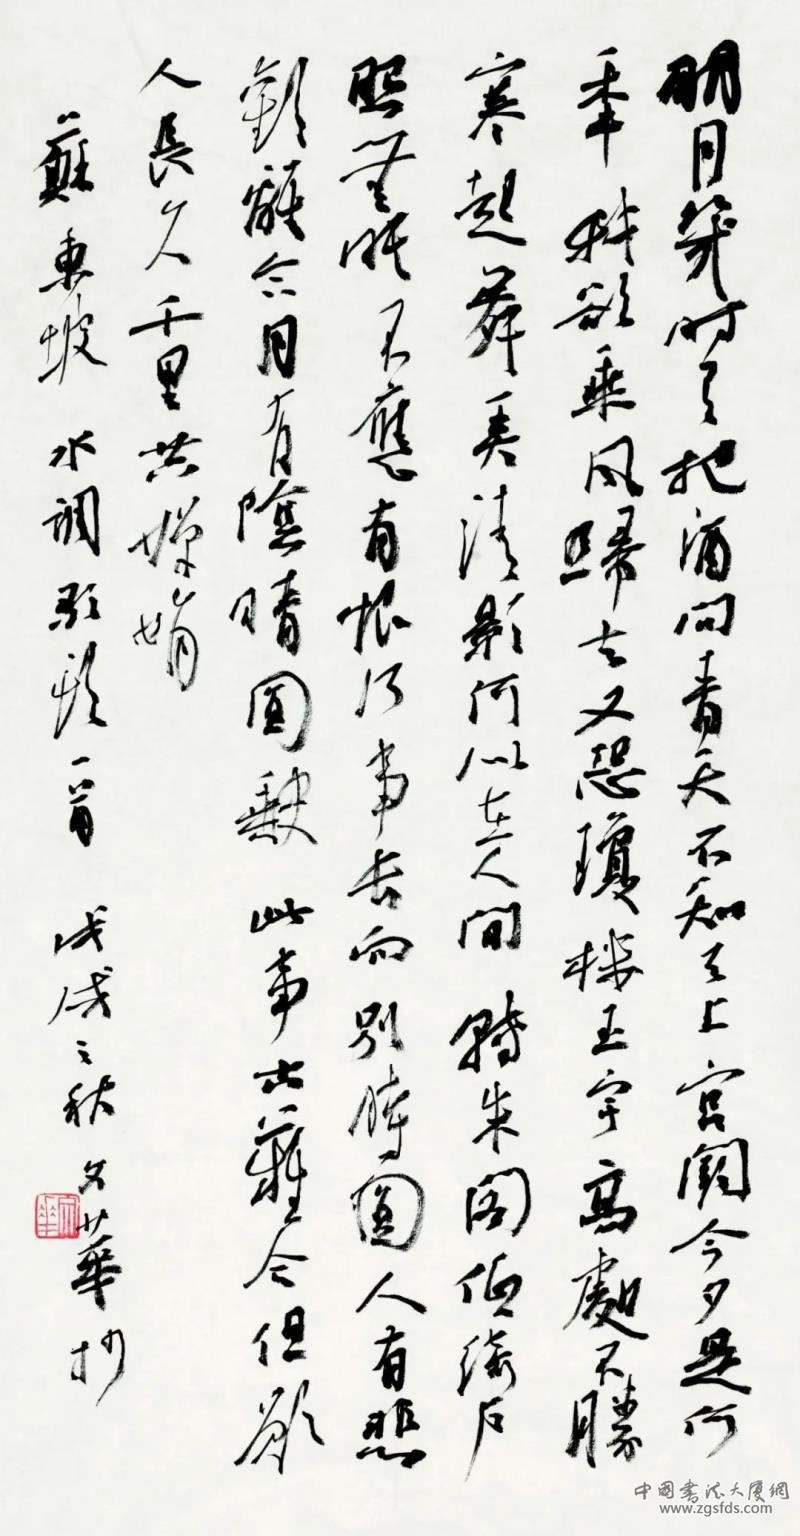 明月幾時有把酒問青天不知天上宮闕今夕是何
年我欲乘风歸去又恐瓊楼玉宇高處不勝
寒起舞弄清影何似在人間轉朱阁低綺户
照無眠不應有恨何事长向别時圆人有悲
歡離合月有陰晴圆缺此事古難全但願
人長久千里共嬋娟
蘇東坡水调歌頭一首戊戌之秋文華抄
中國書法大厦網
www.zgsfds.com